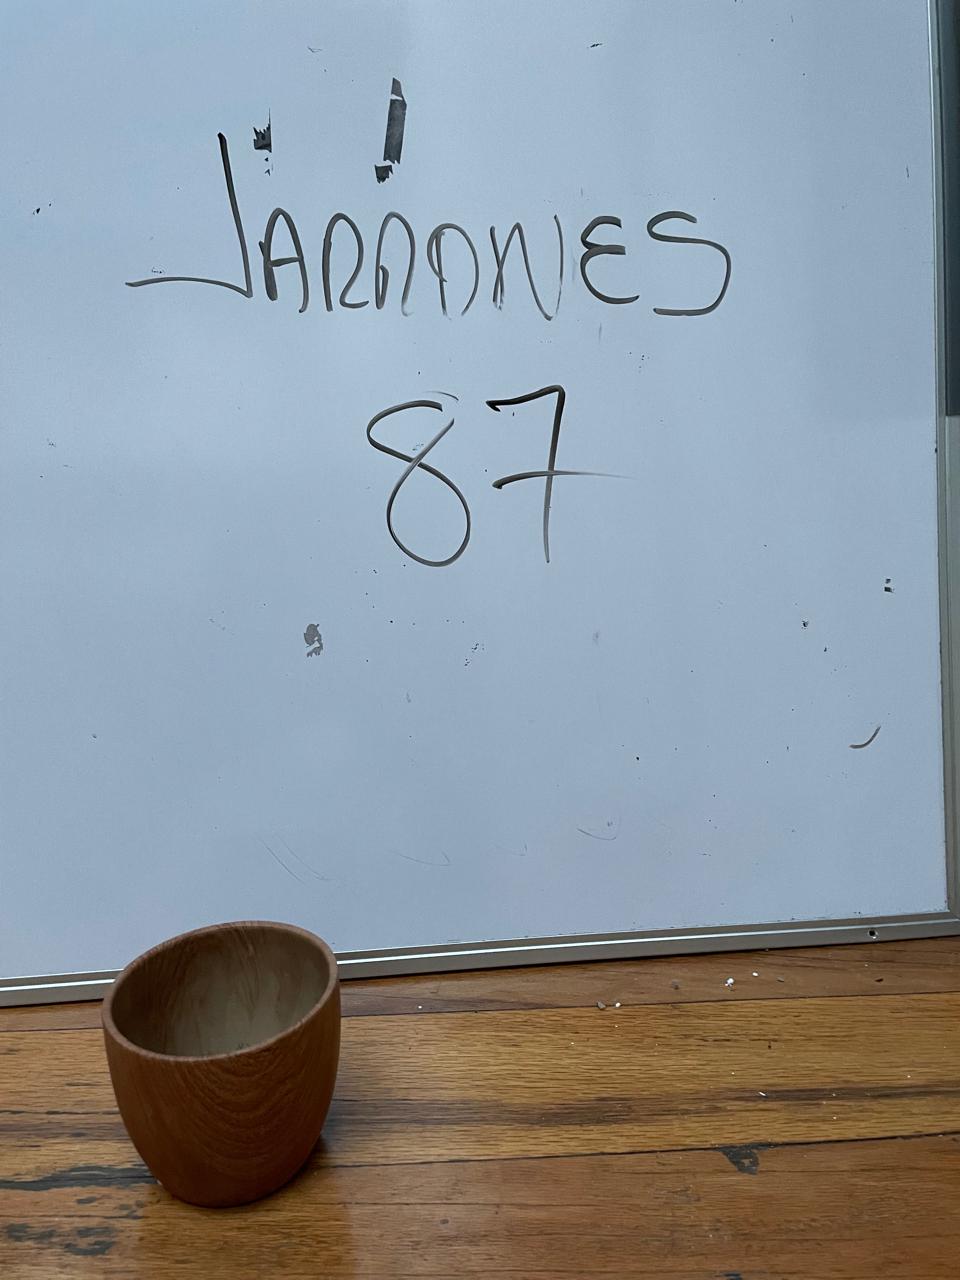 JARRONES
87